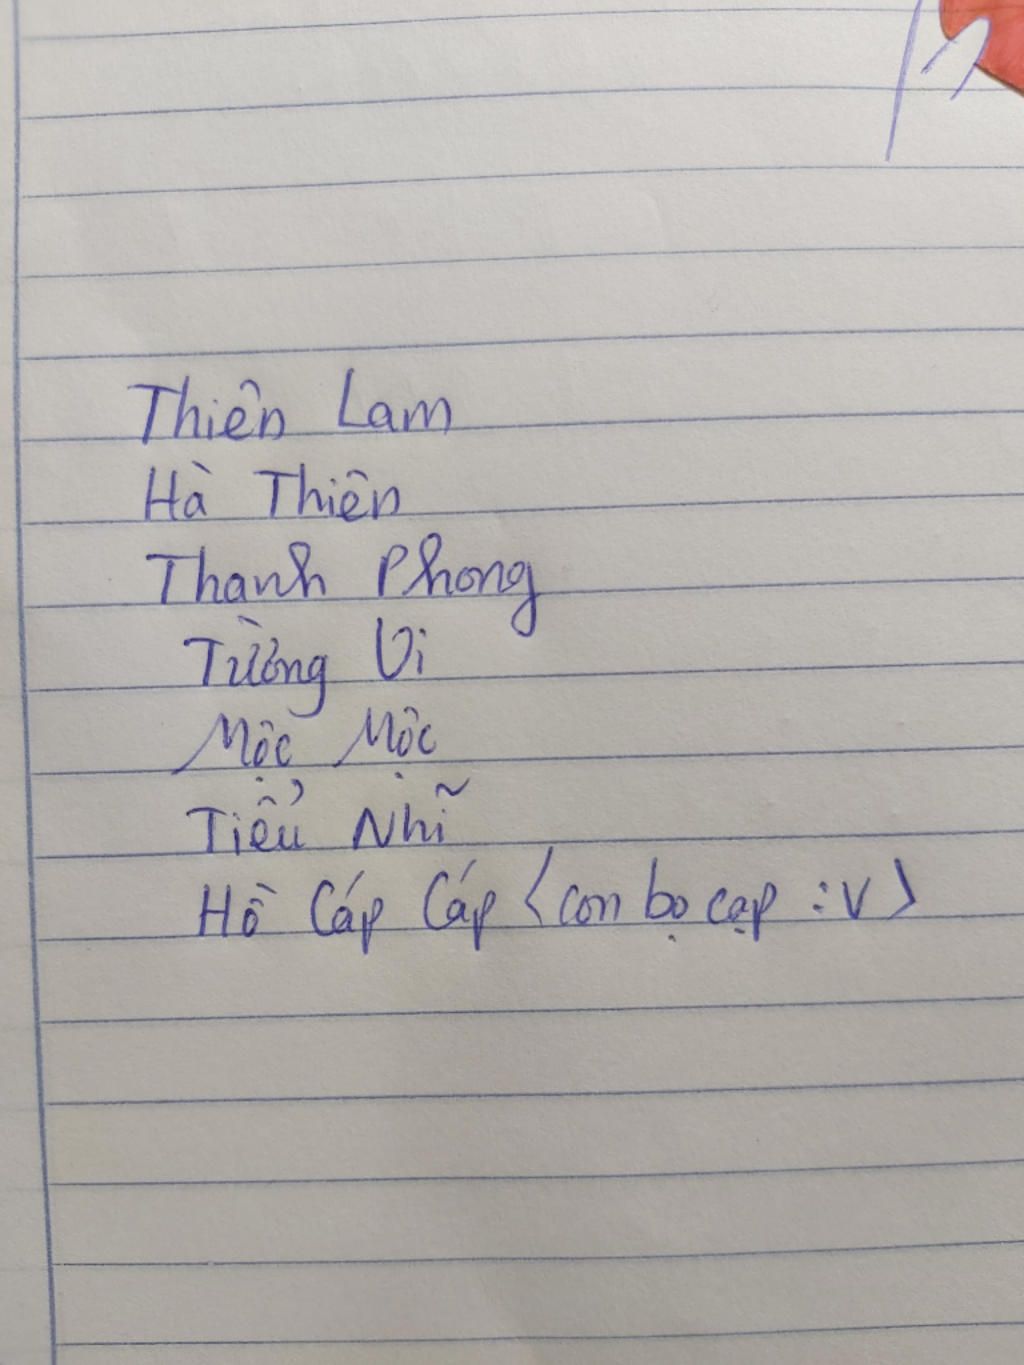 Thiên Lam
Hà Thiên
Thanh Phong
Tường Vi
Mộc Mộc
Tiểu Nhĩ
Hồ Cáp Cáp <con bọ cạp :v>